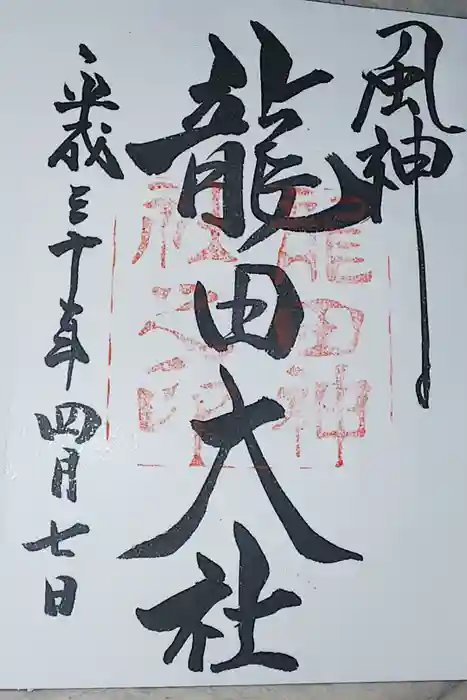 風神
龍田大社
平成三十年四月七日
龍田神
社之印